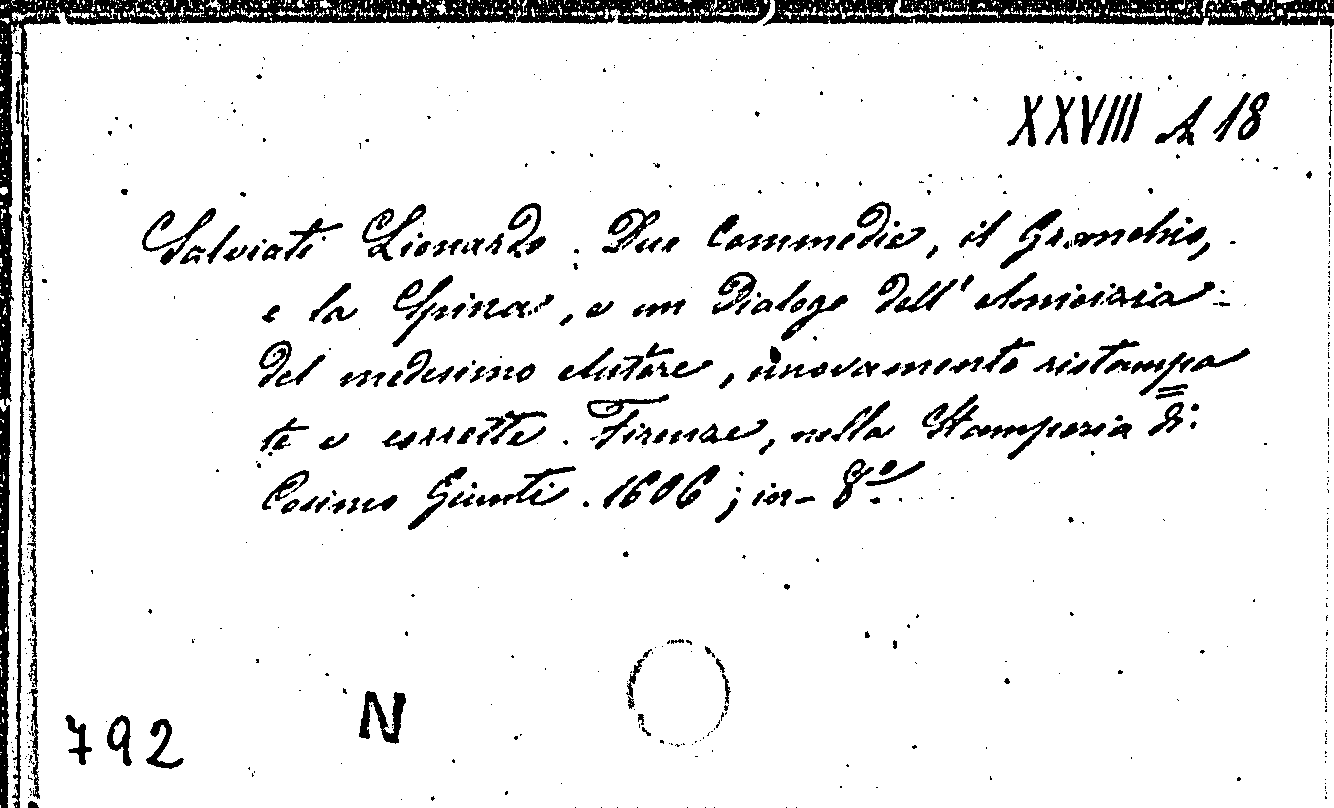 XXVIII A 18
Salviati Lionardo. Due Commedie, il Granchio,
e la Spina, e un Dialogo dell' Amicizia
del medesimo Autore, nuovamente ristampa
te e corrette. Firenze, nella Stamperia di
Cosimo Giunti. 1606; in-8º
792
N